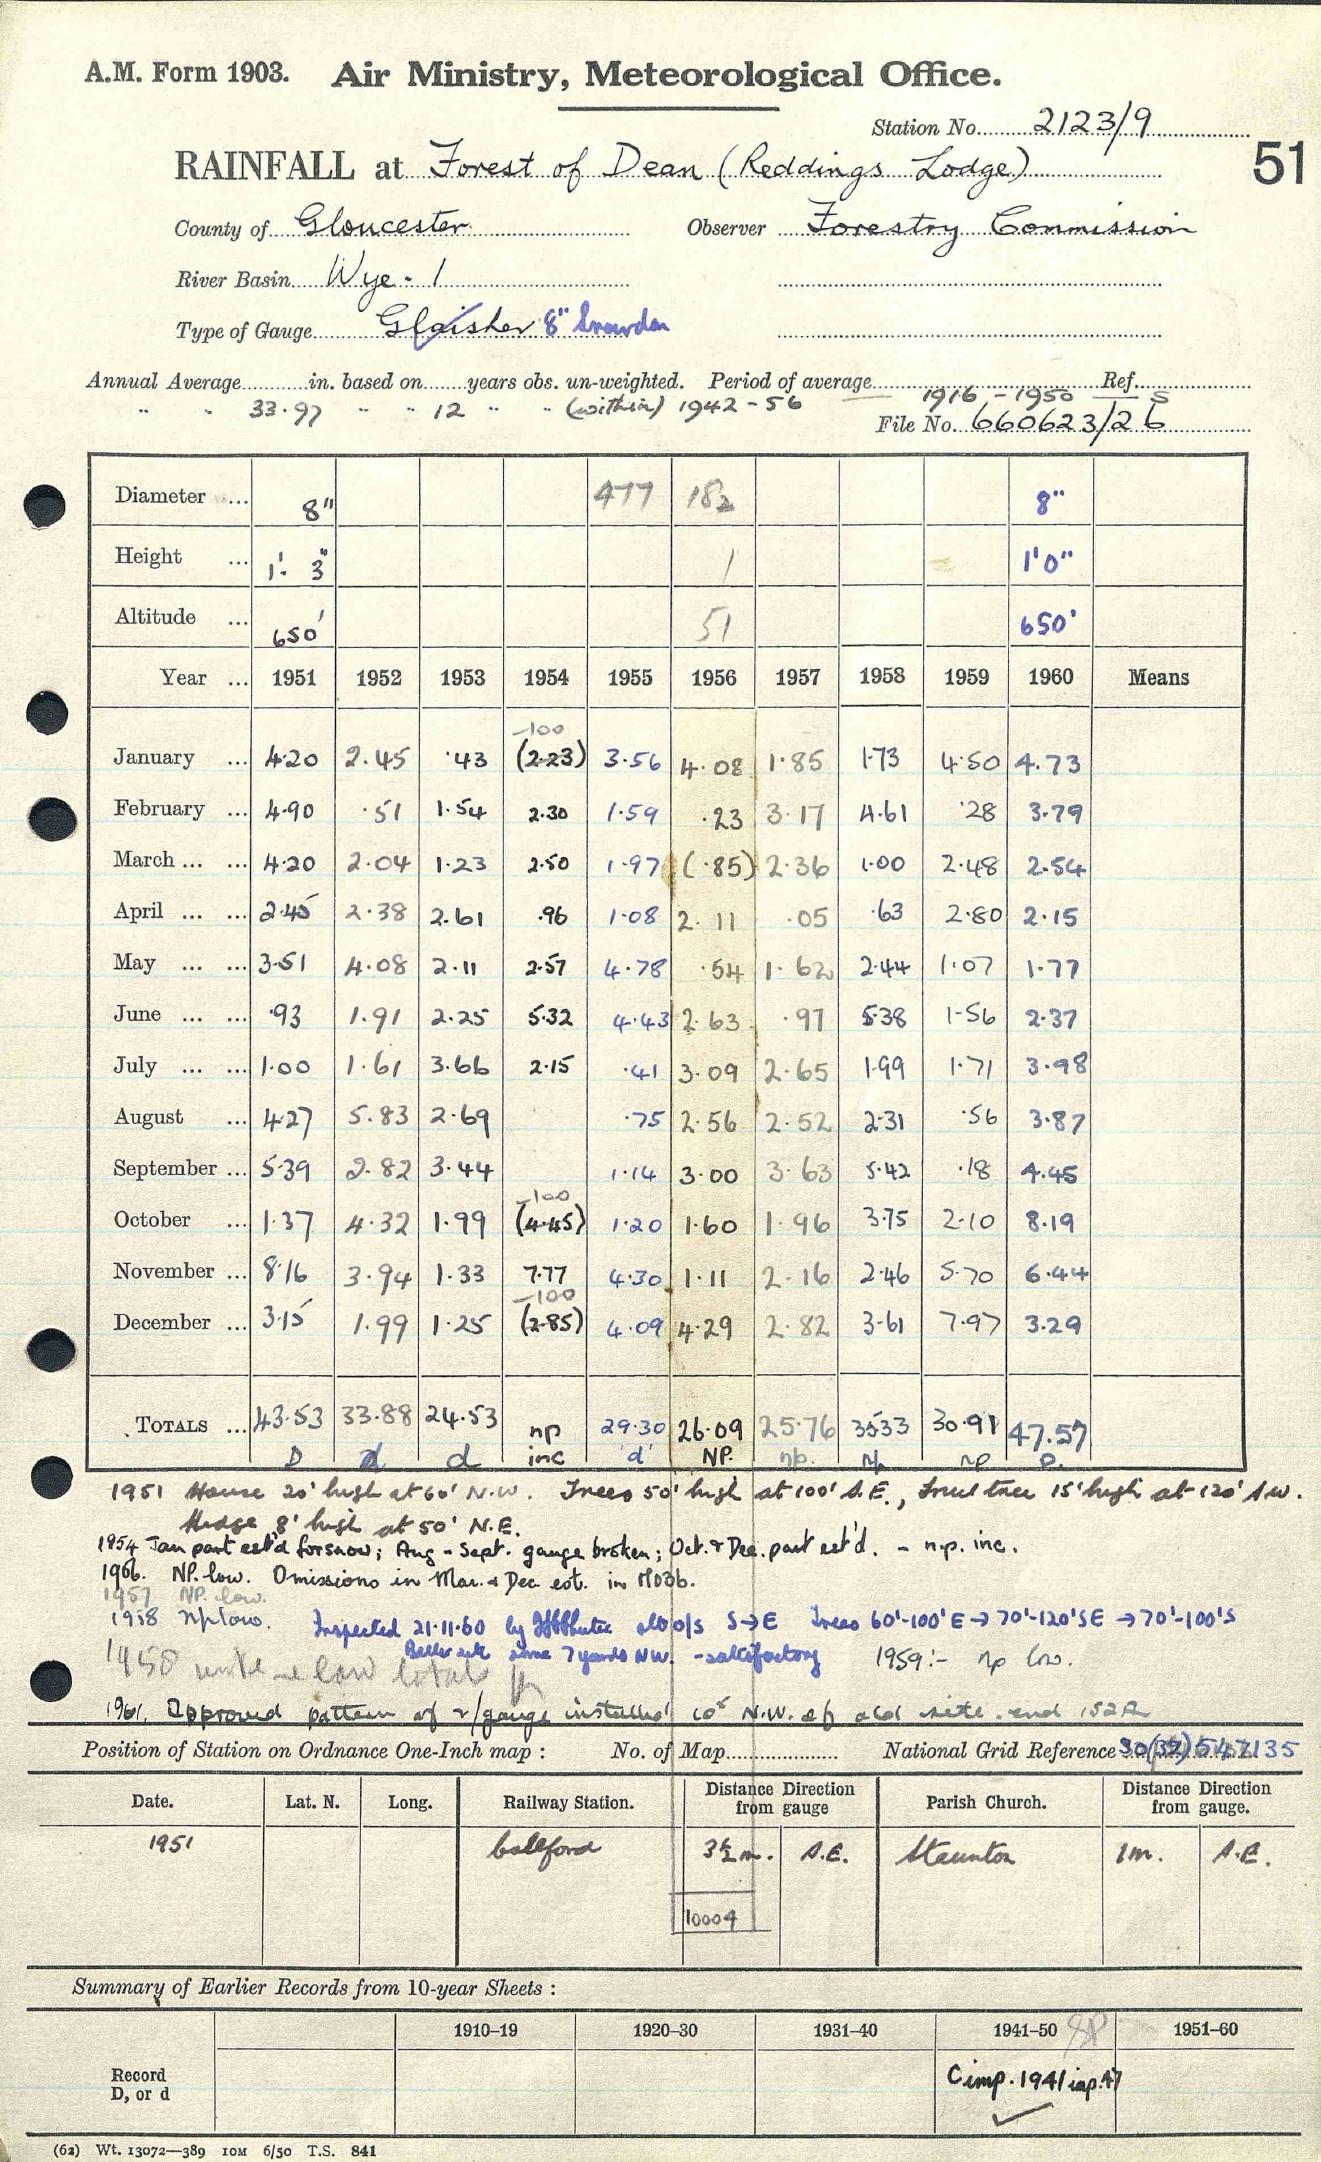 A.M. Form 1903. Air Ministry, Meteorological Office.
Station No. 2123/9
51
RAINFALL at Forest of Dean (Reddings Lodge)
County of Gloucester Observer Forestry Commission
River Basin Wye - 1
Type of Gauge Glaisher 8" Snowdon
Annual Average in. based on years obs. un-weighted. Period of average Ref.
" " 33.97 " " 12 " " (within) 1942-56 1916-1950 I S
File No. 660623/26
Diameter ... 8" 477 182 8"
Height ... 1'- 3" 1 1'0"
Altitude ... 650' 51 650'
Year ... 1951 1952 1953 1954 1955 1956 1957 1958 1959 1960 Means
-100
January ... 4.20 2.45 .43 (2.23) 3.56 4.08 1.85 1.73 4.50 4.73
February ... 4.90 .51 1.54 2.30 1.59 .23 3.17 4.61 .28 3.79
March ... ... 4.20 2.04 1.23 2.50 1.97 (.85) 2.36 1.00 2.48 2.54
April ... ... 2.45 2.38 2.61 .96 1.08 2.11 .05 .63 2.80 2.15
May ... ... 3.51 4.08 2.11 2.57 4.78 .54 1.62 2.44 1.07 1.77
June ... ... .93 1.91 2.25 5.32 4.43 2.63 .97 5.38 1.56 2.37
July ... ... 1.00 1.61 3.66 2.15 .41 3.09 2.65 1.99 1.71 3.98
August ... 4.27 5.83 2.69 .75 2.56 2.52 2.31 .56 3.87
September ... 5.39 2.82 3.44 1.14 3.00 3.63 5.42 .18 4.45
-100
October ... 1.37 4.32 1.99 (4.45) 1.20 1.60 1.96 3.75 2.10 8.19
November ... 8.16 3.94 1.33 7.77 4.30 1.11 2.16 2.46 5.70 6.44
-100
December ... 3.15 1.99 1.25 (2.85) 4.09 4.29 2.82 3.61 7.97 3.29
TOTALS ... 43.53 33.88 24.53 np 29.30 26.09 25.76 35.33 30.91 47.57
D d d inc 'd' NP. np. np np D.
1951 House 20' high at 60' N.W. Trees 50' high at 100' S.E., fruit tree 15' high at 120' S.W.
Hedge 8' high at 50' N.E.
1954 Jan part est'd for snow; Aug - Sept. gauge broken; Oct. & Dec. part est'd. - n.p. inc.
1956. NP. low. Omissions in Mar. & Dec est. in M03b.
1957 NP. low.
1958 np low. Inspected 21.11.60 by S→E Trees 60'-100' E → 70'-120' SE → 70'-100' S
Better site some 7 yards NW. - satisfactory 1959:- np low.
1958 low totals
1961. Approved pattern of r/gauge installed 10x N.W. of old site.
Position of Station on Ordnance One-Inch map : No. of Map National Grid Reference 30(32) 547135
Date. Lat. N. Long. Railway Station. Distance from gauge Direction Parish Church. Distance from gauge. Direction
1951 Coleford 3½ m. S.E. Staunton 1m. S.E.
10004
Summary of Earlier Records from 10-year Sheets :
1910–19 1920–30 1931–40 1941–50 1951–60
Record
D, or d
C imp. 1941 imp. 47
(62) Wt. 13072—389 10M 6/50 T.S. 841